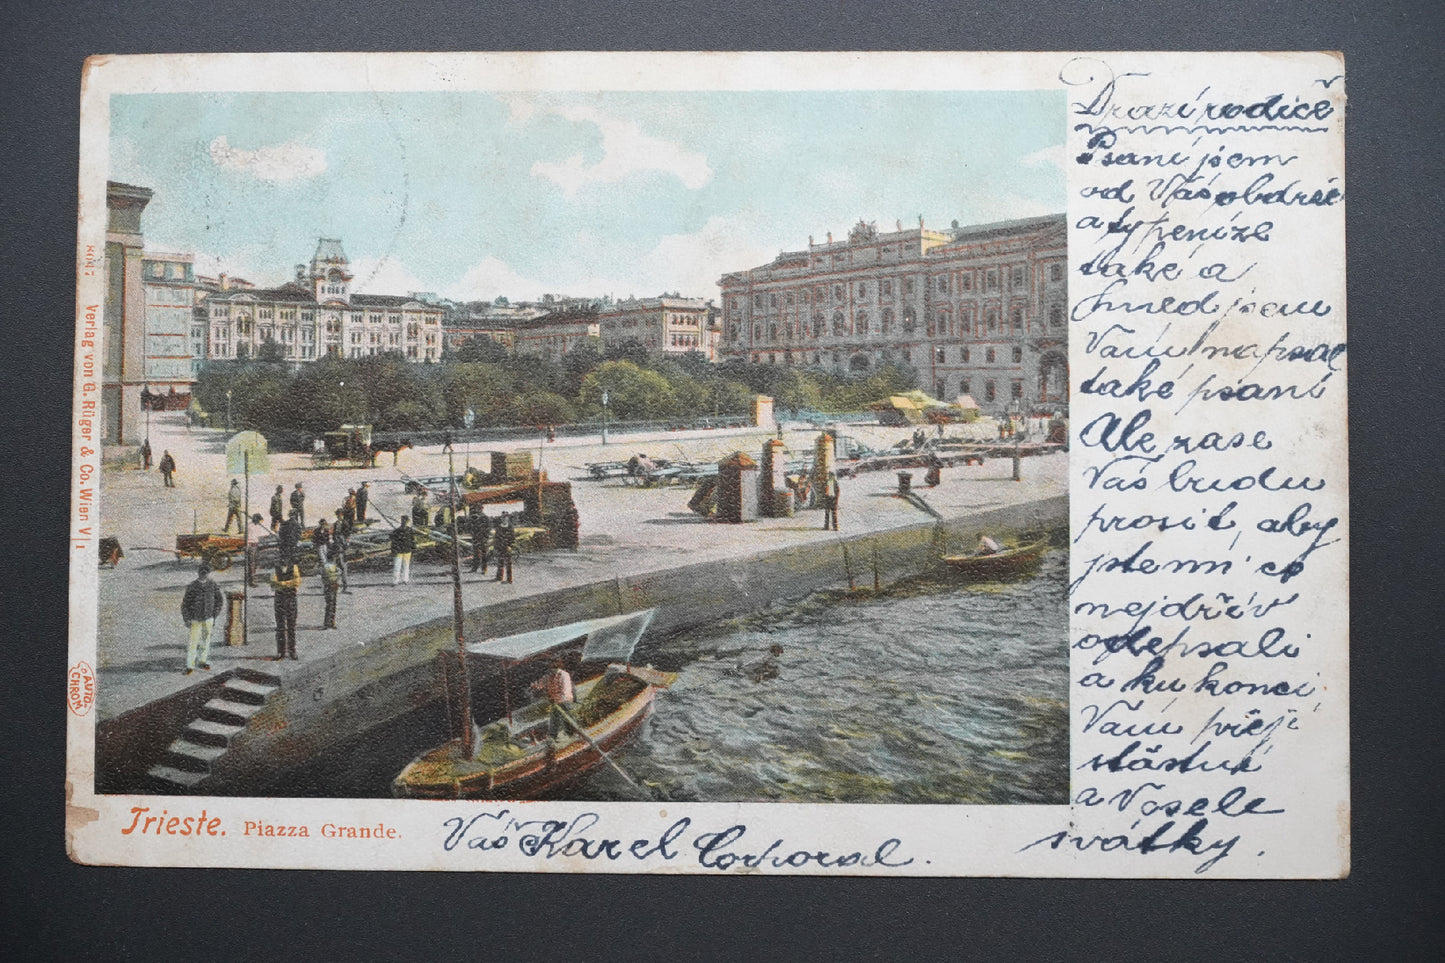 Drazí rodiče
Psaní jsem
od Vás obdržel
a ty peníze
také a
hned jsem
Vám napsal
také psaní
Ale zase
Vás budu
prosit, aby
jste mi co
nejdřív
odepsali
a ku konci
Vám přeji
štástné
a Vesele
svátky.
Váš Karel Corporal.
Trieste. Piazza Grande.
Verlag von G. Rüger & Co. Wien V|1
AUTO-
CHROM